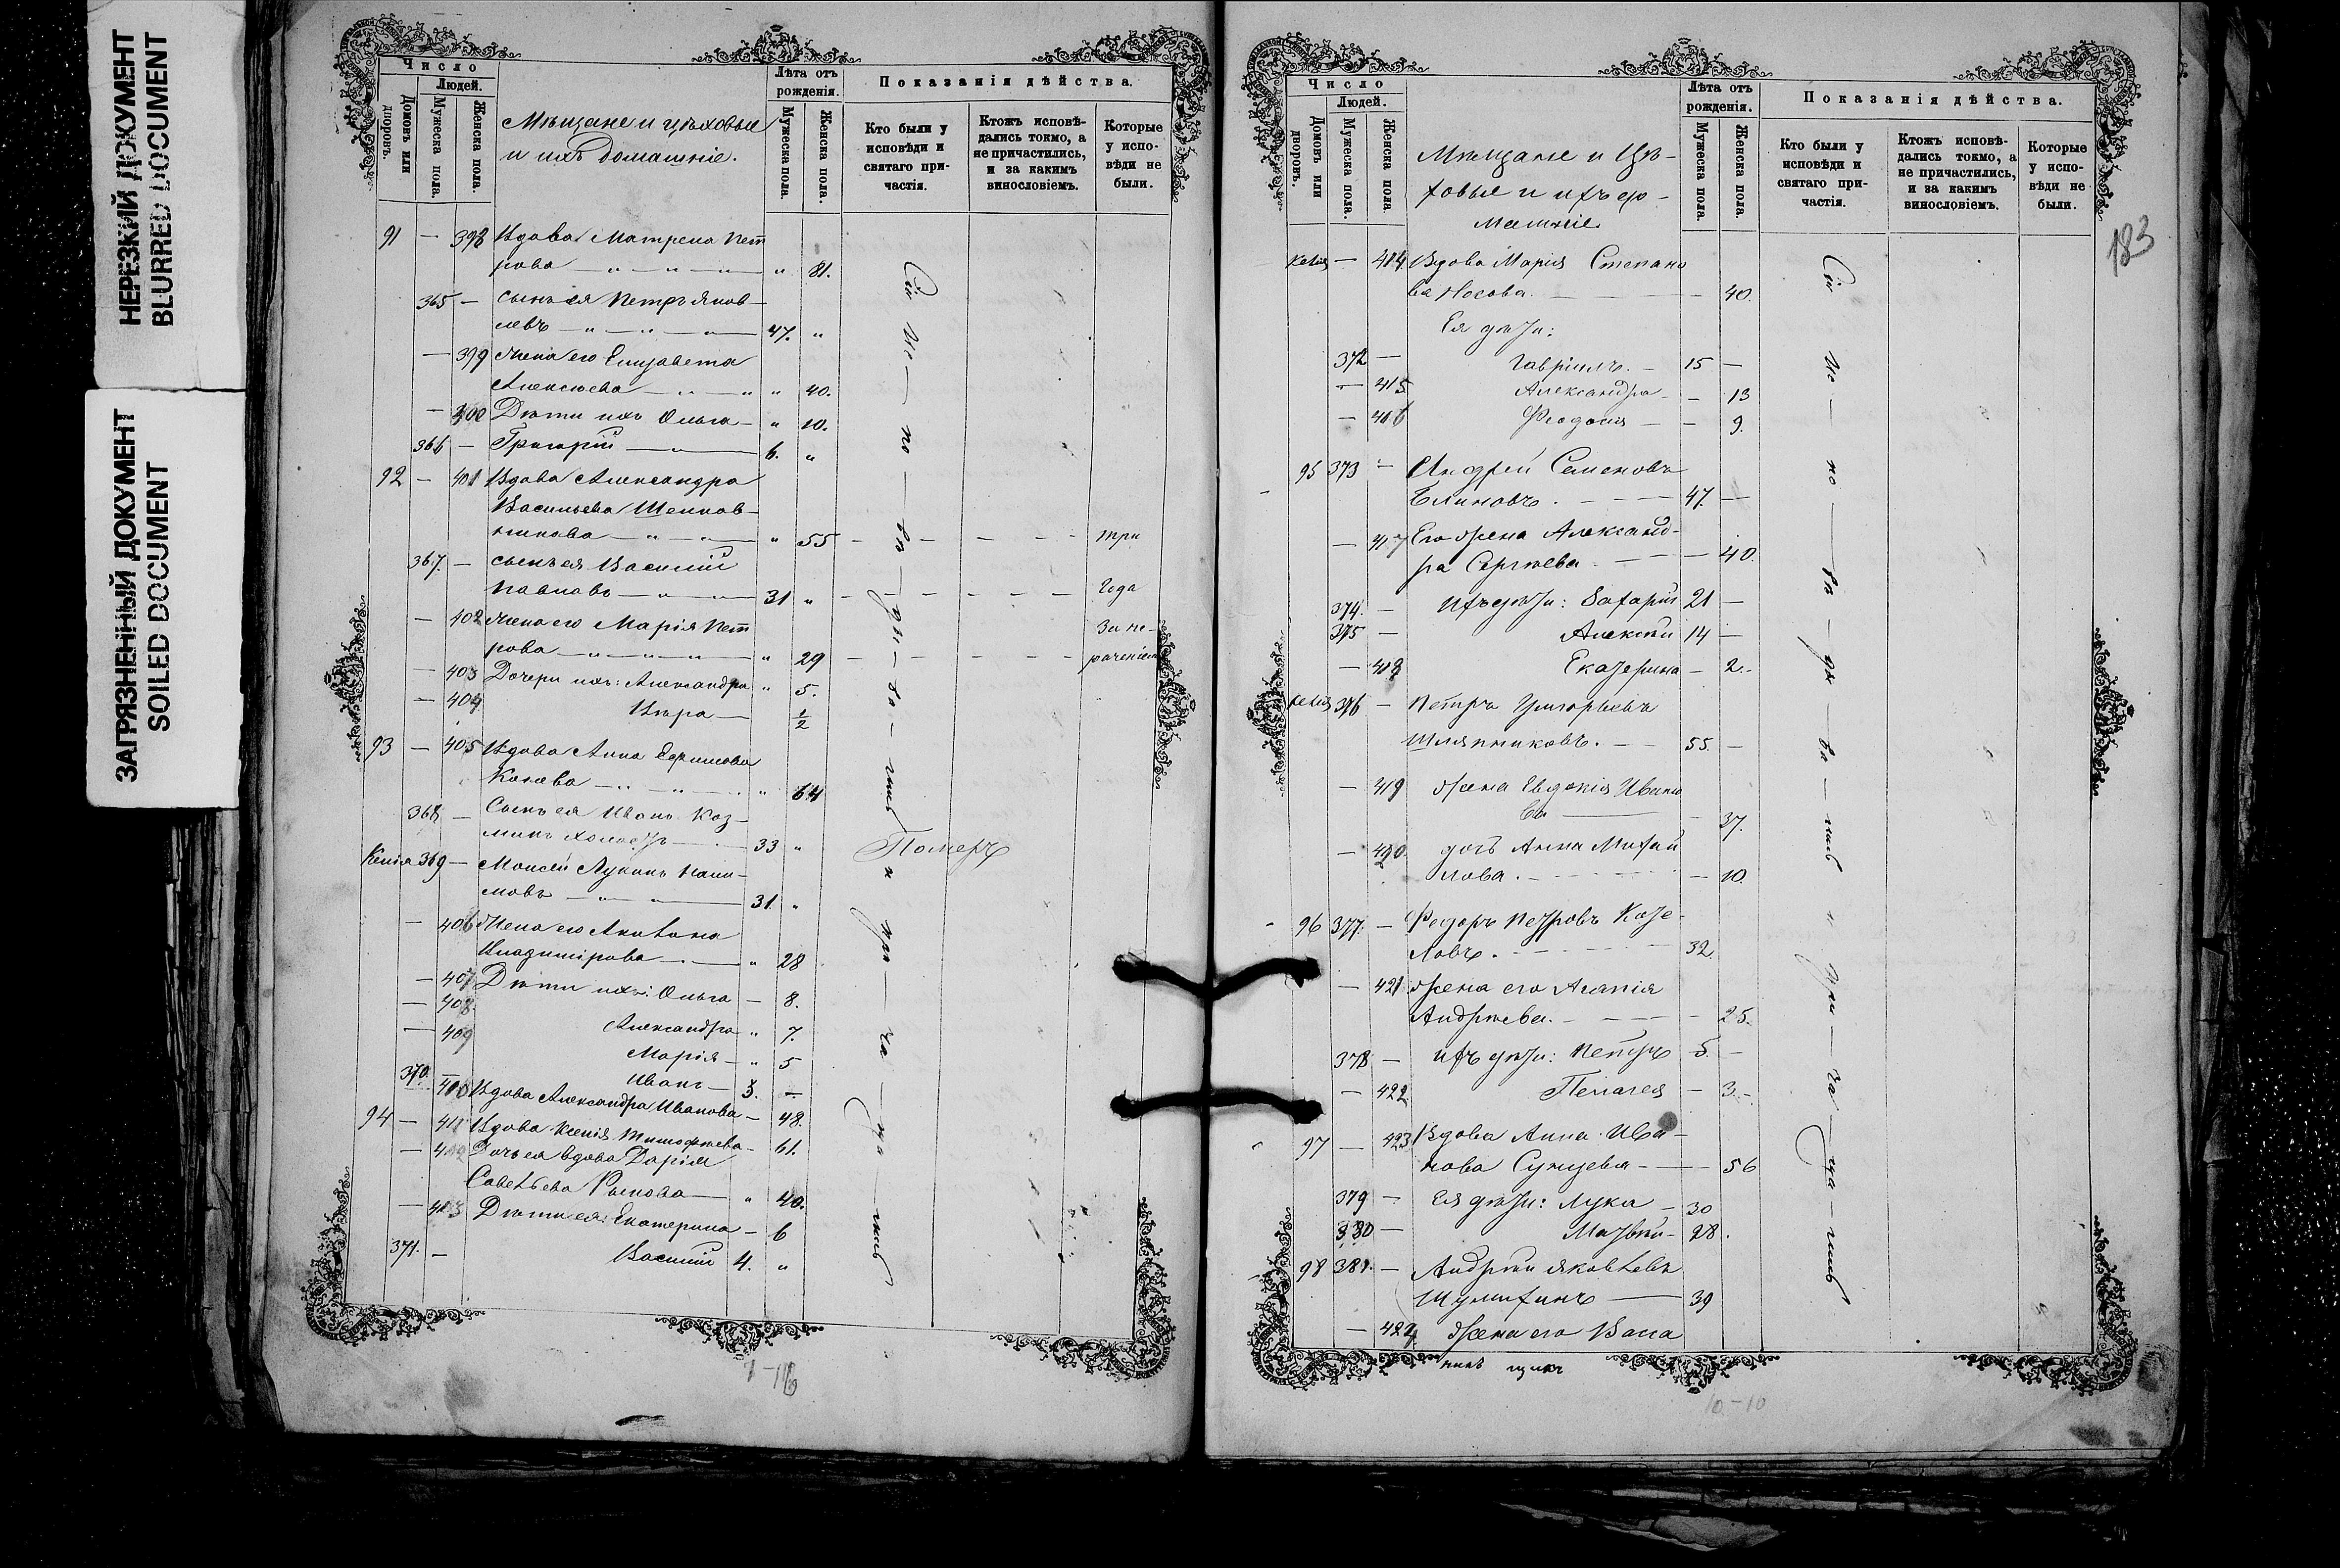 НЕРЕЗКИЙ ДОКУМЕНТ
BLURRED DOCUMENT
ЗАГРЯЗНЕННЫЙ ДОКУМЕНТ
SOILED DOCUMENT
Число
Людей.
Домовъ или дворовъ.
Мужеска пола.
Женска пола.
Мѣщане и цѣховые
и ихъ домашніе.
Лѣта отъ рожденія.
Мужеска пола.
Женска пола.
Показанія дѣйства.
Кто были у исповѣди и святаго причастія.
Ктожъ исповѣдались токмо, а не причастились, и за какимъ винословіемъ.
Которые у исповѣди не были.
91 — 398 Вдова Матрена Пет
рова — „ — „ — „ — „ 81.
365 — Сынъ ея Петръ Яков-
левъ — „ — „ — „ — 47. „
— 399 Жена его Елизавета
Алексѣева — „ — „ „ 40.
— 400 Дѣти ихъ Ольга — „ 10.
366 — Григорій — „ — 6. „
92 — 401 Вдова Александра
Васильева Шелков-
никова — „ — „ — „ 55 — — — — — три
367. — Сынъ ея Василій
Павловъ — „ — „ — 31 „ — — — — — — года
— 402 Жена его Марія Пет за не-
рова — „ — „ — „ — „ 29 — — — — — раченіемъ
— 403 Дочери ихъ: Александра „ 5.
— 404 Вѣра — ½
93 — 405 Вдова Анна Ефимова
Конева — „ — „ — „ 64
368 — Сынъ ея Иванъ Коз-
минъ холостъ — 33 „ Померъ
Келія 369 — Моисей Лукинъ
мовъ — „ — „ — 31. „
— 406 Жена его
Владимірова — „ — „ 28
— 407 Дѣти ихъ: Ольга — 8.
— 408
— 409 Александра „ 7.
Марія — „ 5
370. — Иванъ — 3. —
410 Вдова Александра Иванова — 48.
94 — 411 Вдова Ксенія Тимофѣева — 61.
— 412 Дочь ея вдова Дарія
Савельева — „ 40.
— 413 Дѣти ея: Екатерина — 6
371. — Василій 4. „
Сіи ис — по — вѣ — ды — ва — лись и при — ча — ща — лись
7-10
Число
Людей.
Домовъ или дворовъ.
Мужеска пола.
Женска пола.
Мѣщане и Цѣ-
ховые и ихъ до-
машніе
Лѣта отъ рожденія.
Мужеска пола.
Женска пола.
Показанія дѣйства.
Кто были у исповѣди и святаго причастія.
Ктожъ исповѣдались токмо, а не причастились, и за какимъ винословіемъ.
Которые у исповѣди не были.
183
Келія — 414. Вдова Марія Степано
ва Носова. — — — — 40.
Ея дѣти:
372 — Гавріилъ. — 15 —
— 415 Александра — — 13
— 416 Феодосія — — 9.
95 373 — Андрей Семеновъ
Блиновъ. — — — 47. —
— 417 Его жена Александ-
ра Сергѣева. — — — 40.
374. — Ихъ дѣти: Захарій 21 —
375 — Алексѣй 14 —
— 418 Екатерина — 2. —
Келія 376 — Петръ Григорьевъ
Шляпниковъ. — — 55. —
— 419 жена Евдокія Ивано
ва — — 37.
— 420. дочь Анна Михай
лова. — — — — — 10.
96 377. — Федоръ Петровъ Козе-
ловъ. — — — — 32.
— 421 жена его Агапія
Андреева. — — — — 25.
378 — Ихъ дѣти: Петръ 5. —
— 422 Пелагея — 3. —
97 — 423 Вдова Анна Ива-
нова Сунцева — — — 56
379 — Ея дѣти: Лука — 30
380 — Матвѣй — 28.
98 381. — Андрей Яковлевъ
Шумихинъ — 39
— 424 жена его Васа
Сіи ис — по — вѣ — ды — ва — лись и при — ча — ща — лись
10-10